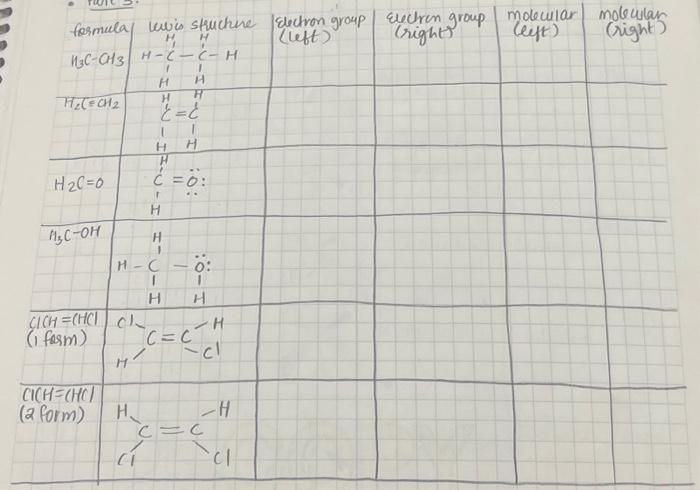 Part 3.
formula
lewis structure
Electron group (left)
Electron group (right)
molecular (left)
molecular (right)
H3C-CH3
H H
H-C-C-H
H H
H2C=CH2
H H
C=C
H H
H2C=O
H
C=O:
H
H3C-OH
H
H-C-O:
H H
ClCH=CHCl
(1 form)
Cl H
C=C
H Cl
ClCH=CHCl
(2 form)
H H
C=C
Cl Cl